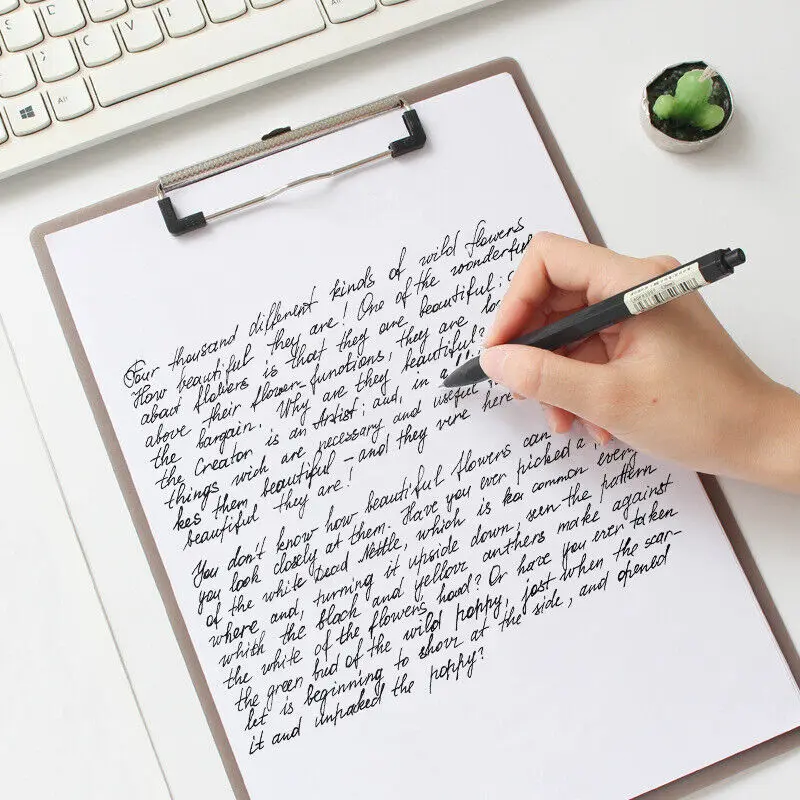 Four thousand different kinds of wild flowers
How beautiful they are! One of the wonderful
about flowers is that they are beautiful;
above their flower-functions, they are
the bargain. Why are they beautiful?
the Creator is an Artist; and, in
things wich are necessary and useful
kes them beautiful – and they were here
beautiful they are!
You don't know how beautiful flowers can
you look closely at them. Have you ever picked a
of the white Dead Nettle, which is common every
where and, turning it upside down, seen the pattern
which the black and yellow anthers make against
the white of the flowers hood? Or have you ever taken
the green bud of the wild poppy, just when the scar-
let is beginning to show at the side, and opened
it and unpacked the poppy?
Alt
Alt